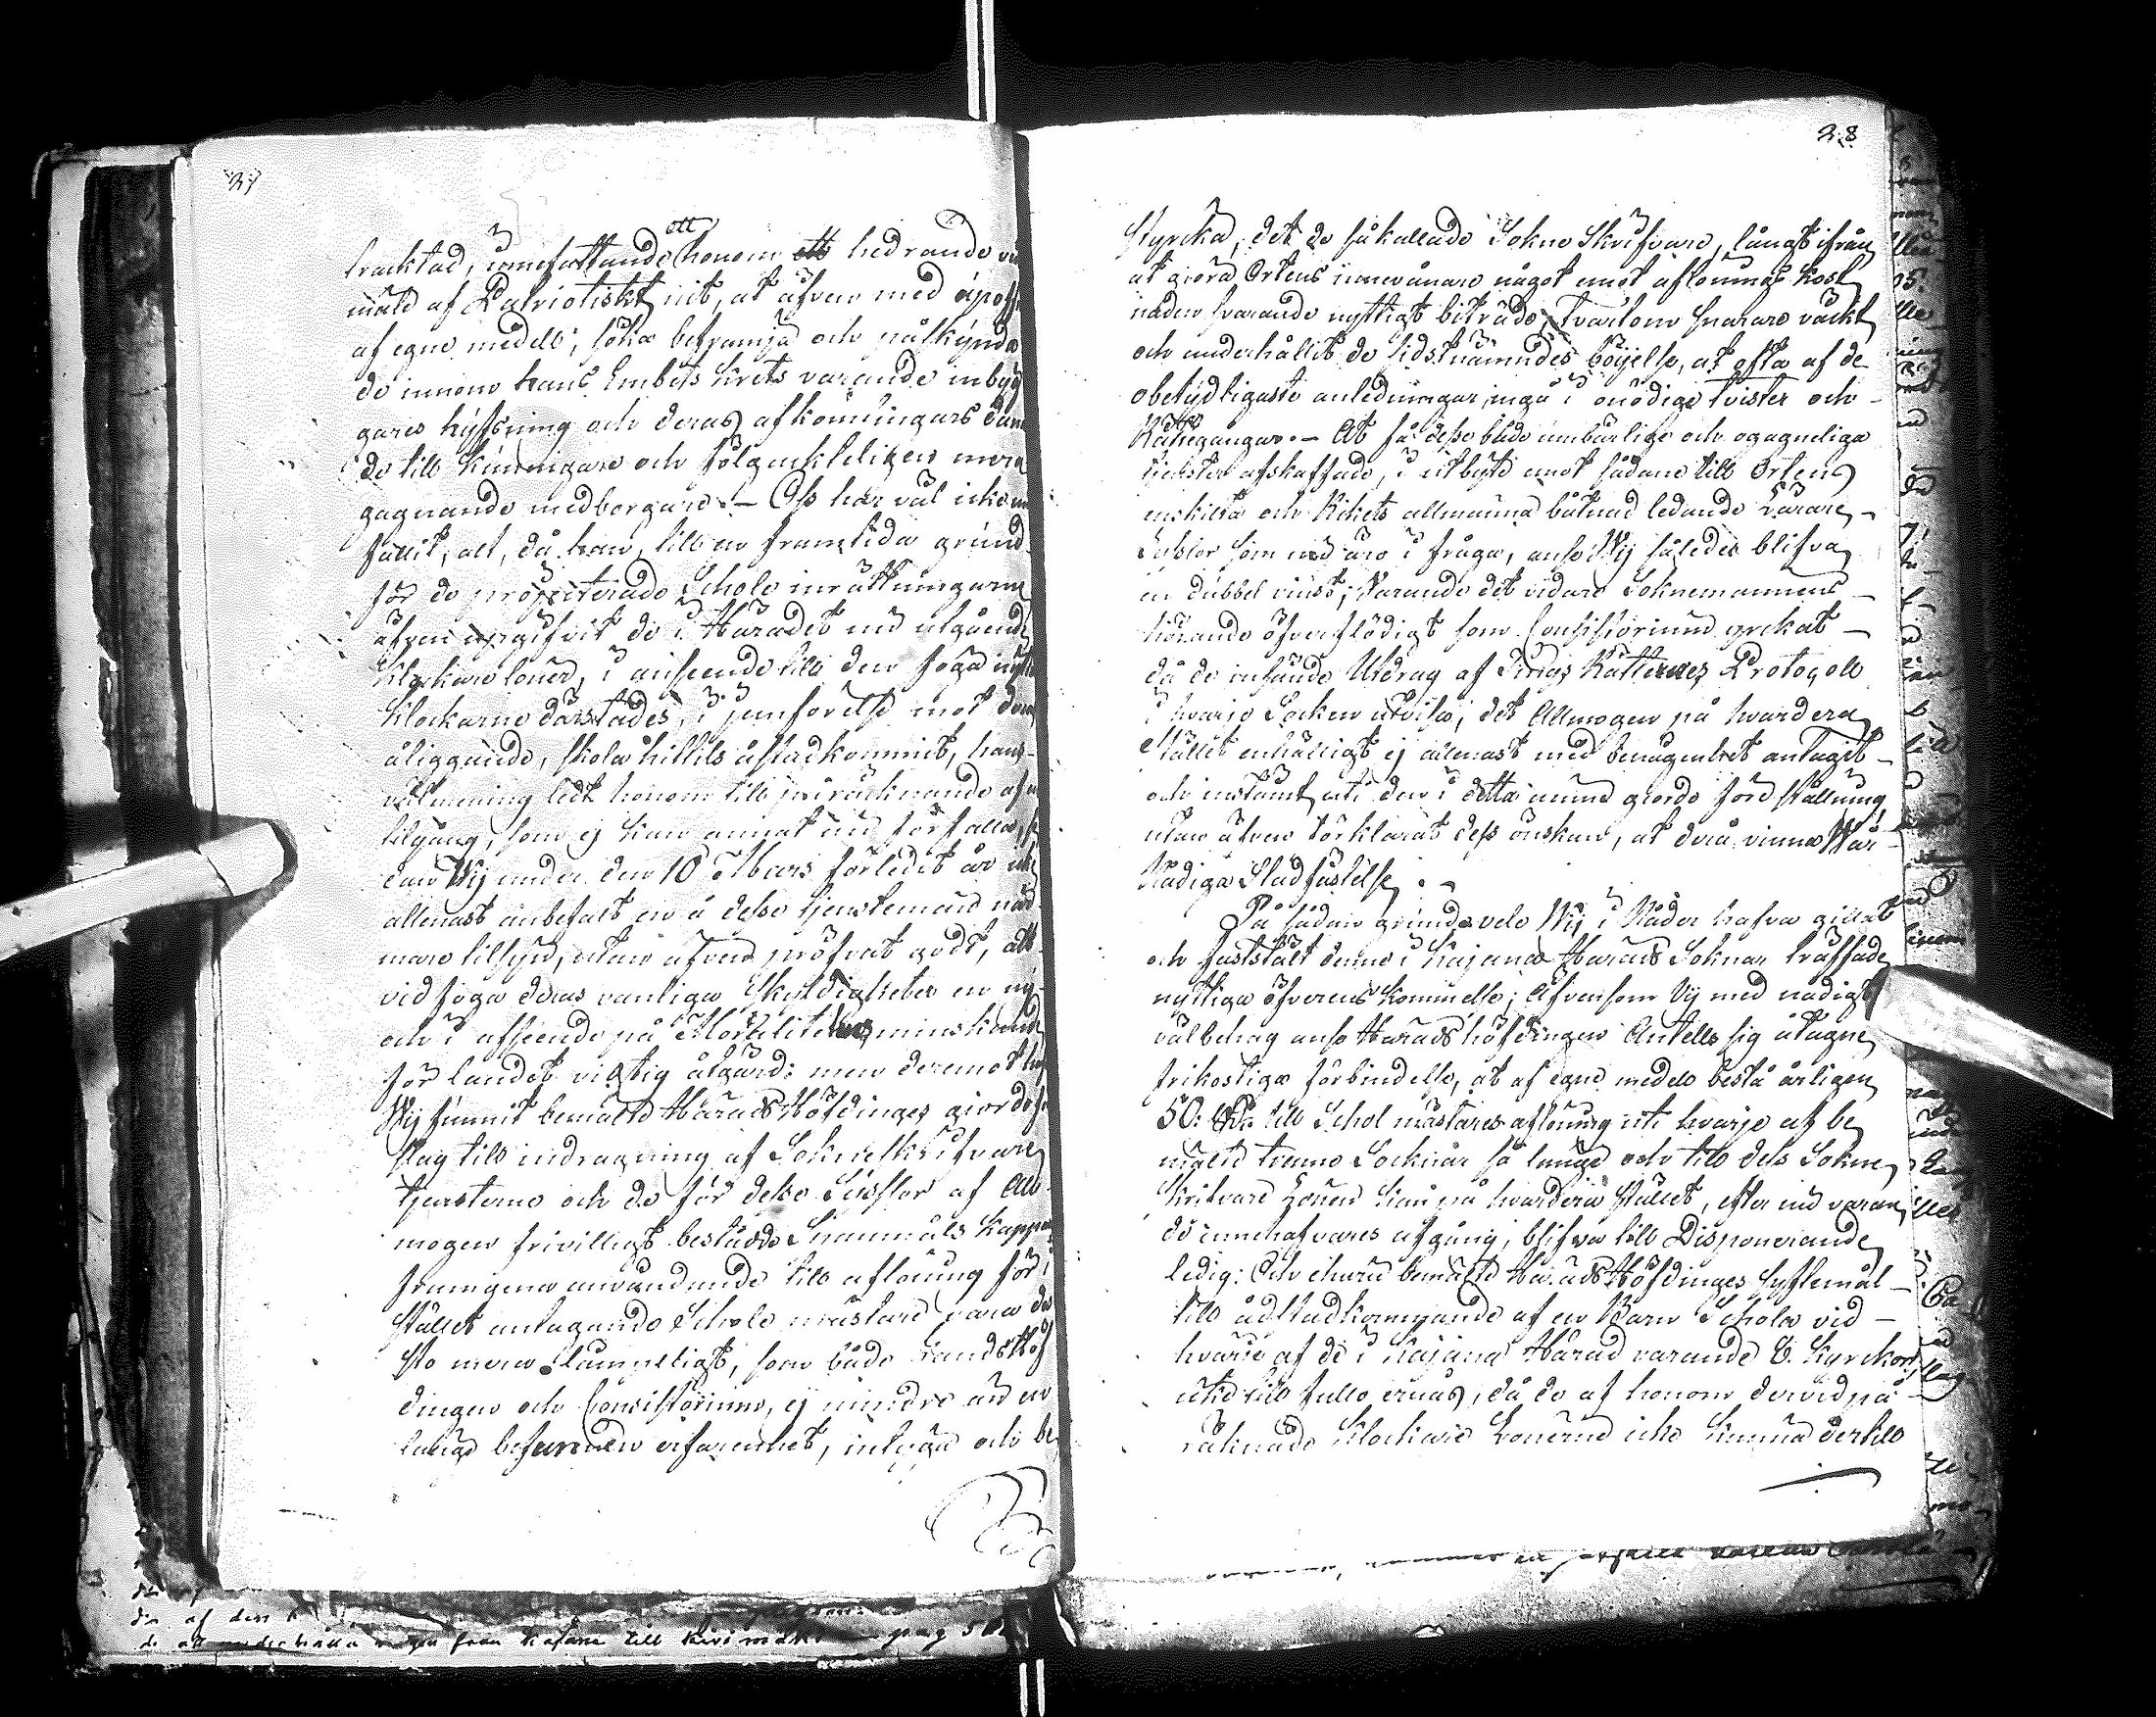 27
tracktad, innefattande honom ett hedrande wit
måld af Patriotiskt nit, at äfven med opoff
af egne medell, söka befrämja och påskynda
de innom hans Embets Krets varande inbyg
gares hyfsning och deras afkomlingars dan
de till kunnigare och följackteligen mera
gagnande medborgare. — Oss har väl icke
fallit, att, då han, till en framtida grund
för de projecterade Schole inrättningarne
äfven upgifvit de i Häradet nu utgående
Klockare löner, i anseende till den föga nytta
Klockarne därstädes, i jemförelse mot dem
åliggande, skola hittils åstadkommit, hans
välmening ledt honom till påräcknande af en
tilgång, som ej kan annat än förfalla, se
dan Wij under den 10 Mars förledit år icke
allenast anbefalt en å desse tjenstemän när
mare tillsyn, utan äfven pröfvat godt, att
vidfoga deras vanliga Skyldigheter en ny
och i afseende på Mortalitetens minskande
för landet vigtig åtgärd: men deremot haf
Wij funnit bemälte Härads Höfdinges giorde för
slag till indragning af Sokneskrifvare
tjensterne och de för desse Sysslor af All
mogen frivilligt bestådde Spannmåls Kappar
framgena användande till aflöning för i
stället antagande Schole mästare vara de
sto mera lämpeligt, som både Landshöf
dingen och Consistorium, ej mindre än en
länge befunnen erfarenhet, intyga och be
28
styrcka, det de så kallade Sokne Skrifvare, långt ifrån
at giöra Ortens innevånare något emot aflönings kost
naden svarande nyttigt biträde, tvärtom snarare väckt
och underhållit de sidstnämndes böijelse, at ofta af de
obetydligaste anledningar ingå i onödige tvister och
Rättegångar. — At få desse både umbärlige och ogagneliga
tjenster afskaffade, i utbyte emot sådane till Ortens
enskilta och Rikets allmänna båtnad ledande Lärare
Sysslor som nu äro i fråga, anse Wij således blifva
en dubbel vinst; Varande det vidare Soknemännens
hörande öfverflödigt som Consistorium yrckat
då de insände Utdrag af Tings Rätternes Protocoll
i hvarje Socken utvisa, det Allmogen på hvardera
Stället enhälligt ej allenast med benägenhet antagit
och instämt uti den i detta ämne giorde förestållning,
utan äfven förklarat dess önskan, at derå vinna Wår
Nådiga Stadfästelse. —
På sådan grund vele Wij i Nåder hafva gillat
och fastställt denne i Kajana Härads Soknar träffade
nyttiga öfverenskommelse; Äfvensom Vij med nådigt
välbehag anse Häradshöfdingen Antells sig åtagne
frikostiga förbindelse, at af egne medel bestå årligen
50: RDr till Schol mästares aflöning uti hvarje af be
mälte trenne Socknar så länge och till dess Sokne
Skrifvare Lönen kan på hvardera stället, efter nu varan
de innehafvares afgång, blifva till Disponerande
ledig: Och ehuru bemälte Härads Höfdinges syftemål
till åstadkommande af en Barn Schola vid
hvarje af de i Kajana Härad varande 8. Kyrckor
icke till fullo ernås, då de af honom dervid på
räknade Klockare Lönerne icke kunna dertill